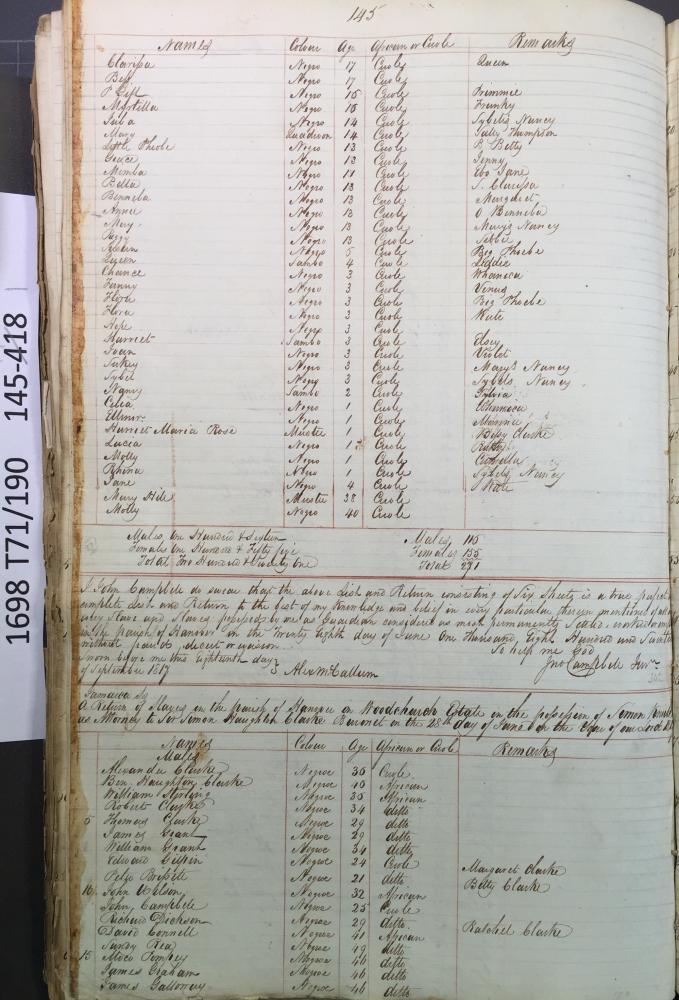 145
1698 T71/190 145-418
Names Colour Age African or Creole Remarks
Clarissa Negro 17 Creole Queen
Bess Negro 17 Creole
Negro 15 Creole Primmee
Myrtilla Negro 15 Creole Franky
Juba Negro 14 Creole Sybels Nancy
Mary Quadroon 14 Creole Sally Thompson
Little Phebe Negro 13 Creole B. Betty
Grace Negro 13 Creole Jenny
Mimba Negro 11 Creole Ebo Jane
Bella Negro 13 Creole S. Clarissa
Benneba Negro 13 Creole Margaret
Annie Negro 13 Creole O Benneba
Mary Negro 13 Creole Mary's Nancy
Peggy Negro 13 Creole
Negro 5 Creole Big Phoebe
Queen Sambo 4 Creole Liddie
Chance Negro 3 Creole
Fanny Negro 3 Creole Venus
Negro 3 Creole Big Phoebe
Flora Negro 3 Creole Kate
Hope Negro 3 Creole
Harriet Sambo 3 Creole Elsey
Joan Negro 3 Creole Violet
Negro 3 Creole Mary's Nancy
Sybel Negro 3 Creole Sybels Nancy
Nancy Sambo 2 Creole Sylvia
Celia Negro 1 Creole
Ellinor Negro 1 Creole
Harriet Maria Rose Mustee 1 Creole Bessy Clarke
Lucia Negro 1 Creole
Molly Negro 1 Creole
Rhina Negro 1 Creole Sybels Nancy
Jane Negro 4 Creole Kate
Mary Hile Mustee 38 Creole
Molly Negro 40 Creole
Males, One Hundred & Sixteen Males,
Females One Hundred & Fifty five Females 155
Total Two Hundred & Seventy One Total 271
I John Campbell do swear that the above List and Return consisting of Six Sheets is a true perfect
complete List and Return to the best of my Knowledge and belief in every particular therein mentioned of all
every Slave and Slaves possessed by me as Guardian considered as most permanently Settled worked
in the parish of Hanover on the Twenty Eighth day of June One Thousand, Eight Hundred and
without fraud, deceit or evasion. So help me God
Sworn before me this Eighteenth day Jno Campbell Junr
of September 1817 } Alex McCallum
Jamaica Ss
A Return of Slaves in the parish of Hanover on Woodchurch Estate in the possession of Simon
as Attorney to Sir Simon Haughton Clarke Baronet on the 28th day of June in the Year of our Lord
Names Colour Age African or Creole Remarks
Males
Alexander Clarke Negroe 35 Creole
Ben Haughton Clarke Negroe 40 African
William Stirling Negroe 35 African
Robert Clarke Negroe 34 ditto
5 Thomas Clarke Negroe 29 ditto
James Grant Negroe 29 ditto
William Grant Negroe 34 ditto
Edward Gilpin Negroe 24 Creole Margaret Clarke
Negroe 21 ditto Betty Clarke
10 John Nelson Negroe 32 African
John Campbell Negroe 25 Creole
Richard Dickson Negroe 29 ditto Ratchel Clarke
David Connell Negroe 41 African
Sandy Rea Negroe 49 ditto
15 Pompey Negroe 46 ditto
James Graham Negroe 46 ditto
James Galloway Negroe 46 ditto